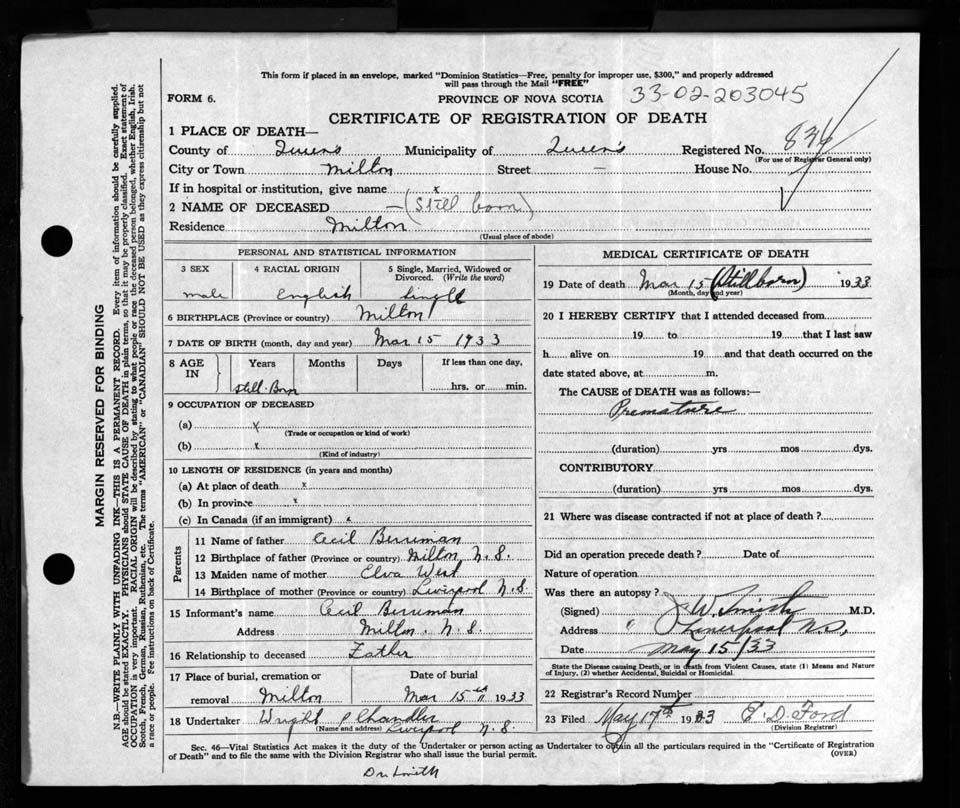 This form if placed in an envelope, marked "Dominion Statistics—Free, penalty for improper use, $300," and properly addressed
will pass through the Mail "FREE"
FORM 6.
PROVINCE OF NOVA SCOTIA
33-02-203045
CERTIFICATE OF REGISTRATION OF DEATH
1 PLACE OF DEATH—
County of Queens Municipality of Queen's Registered No. 836
(For use of Registrar General only)
City or Town Milton Street — House No.
If in hospital or institution, give name x
2 NAME OF DECEASED — (Still born)
Residence Milton
(Usual place of abode)
PERSONAL AND STATISTICAL INFORMATION
3 SEX 4 RACIAL ORIGIN 5 Single, Married, Widowed or
Divorced. (Write the word)
male English Single
6 BIRTHPLACE (Province or country) Milton
7 DATE OF BIRTH (month, day and year) Mar 15 1933
8 AGE Years Months Days If less than one day,
IN Still-Born hrs. or min.
9 OCCUPATION OF DECEASED
(a) x
(Trade or occupation or kind of work)
(b) x
(Kind of industry)
10 LENGTH OF RESIDENCE (in years and months)
(a) At place of death x
(b) In province x
(c) In Canada (if an immigrant) x
Parents
11 Name of father Cecil Berriman
12 Birthplace of father (Province or country) Milton N.S.
13 Maiden name of mother Elva West
14 Birthplace of mother (Province or country) Liverpool N.S.
15 Informant's name Cecil Berriman
Address Milton. N.S.
16 Relationship to deceased Father
17 Place of burial, cremation or Date of burial
removal Milton Mar 15th 1933
18 Undertaker Wright P Chandler
(Name and address) Liverpool N.S.
MEDICAL CERTIFICATE OF DEATH
19 Date of death Mar 15 (Stillborn) 1933
(Month, day and year)
20 I HEREBY CERTIFY that I attended deceased from
19 to 19 that I last saw
h alive on 19 and that death occurred on the
date stated above, at m.
The CAUSE of DEATH was as follows:—
Premature
(duration) yrs mos dys.
CONTRIBUTORY
(duration) yrs mos dys.
21 Where was disease contracted if not at place of death?
Did an operation precede death? Date of
Nature of operation
Was there an autopsy?
(Signed) J W Smith M.D.
Address Liverpool N.S,
Date May 15/33
State the Disease causing Death, or in death from Violent Causes, state (1) Means and Nature
of Injury, (2) whether Accidental, Suicidal or Homicidal.
22 Registrar's Record Number
23 Filed May 17th 1933 E. D. Ford
(Division Registrar)
Sec. 46—Vital Statistics Act makes it the duty of the Undertaker or person acting as Undertaker to obtain all the particulars required in the "Certificate of Registration
of Death" and to file the same with the Division Registrar who shall issue the burial permit. (OVER)
Dr Smith
MARGIN RESERVED FOR BINDING
N.B.—WRITE PLAINLY WITH UNFADING INK—THIS IS A PERMANENT RECORD. Every item of information should be carefully supplied.
AGE should be stated EXACTLY. PHYSICIANS should STATE CAUSE OF DEATH in plain terms, so that it may be properly classified. Exact statement of
OCCUPATION is very important. RACIAL ORIGIN will be described by stating to what people or race the deceased person belonged, whether English, Irish,
Scotch, French, German, Russian, Ruthenian, etc. The terms "AMERICAN" or "CANADIAN" SHOULD NOT BE USED as they express citizenship but not
a race or people. See instructions on back of Certificate.